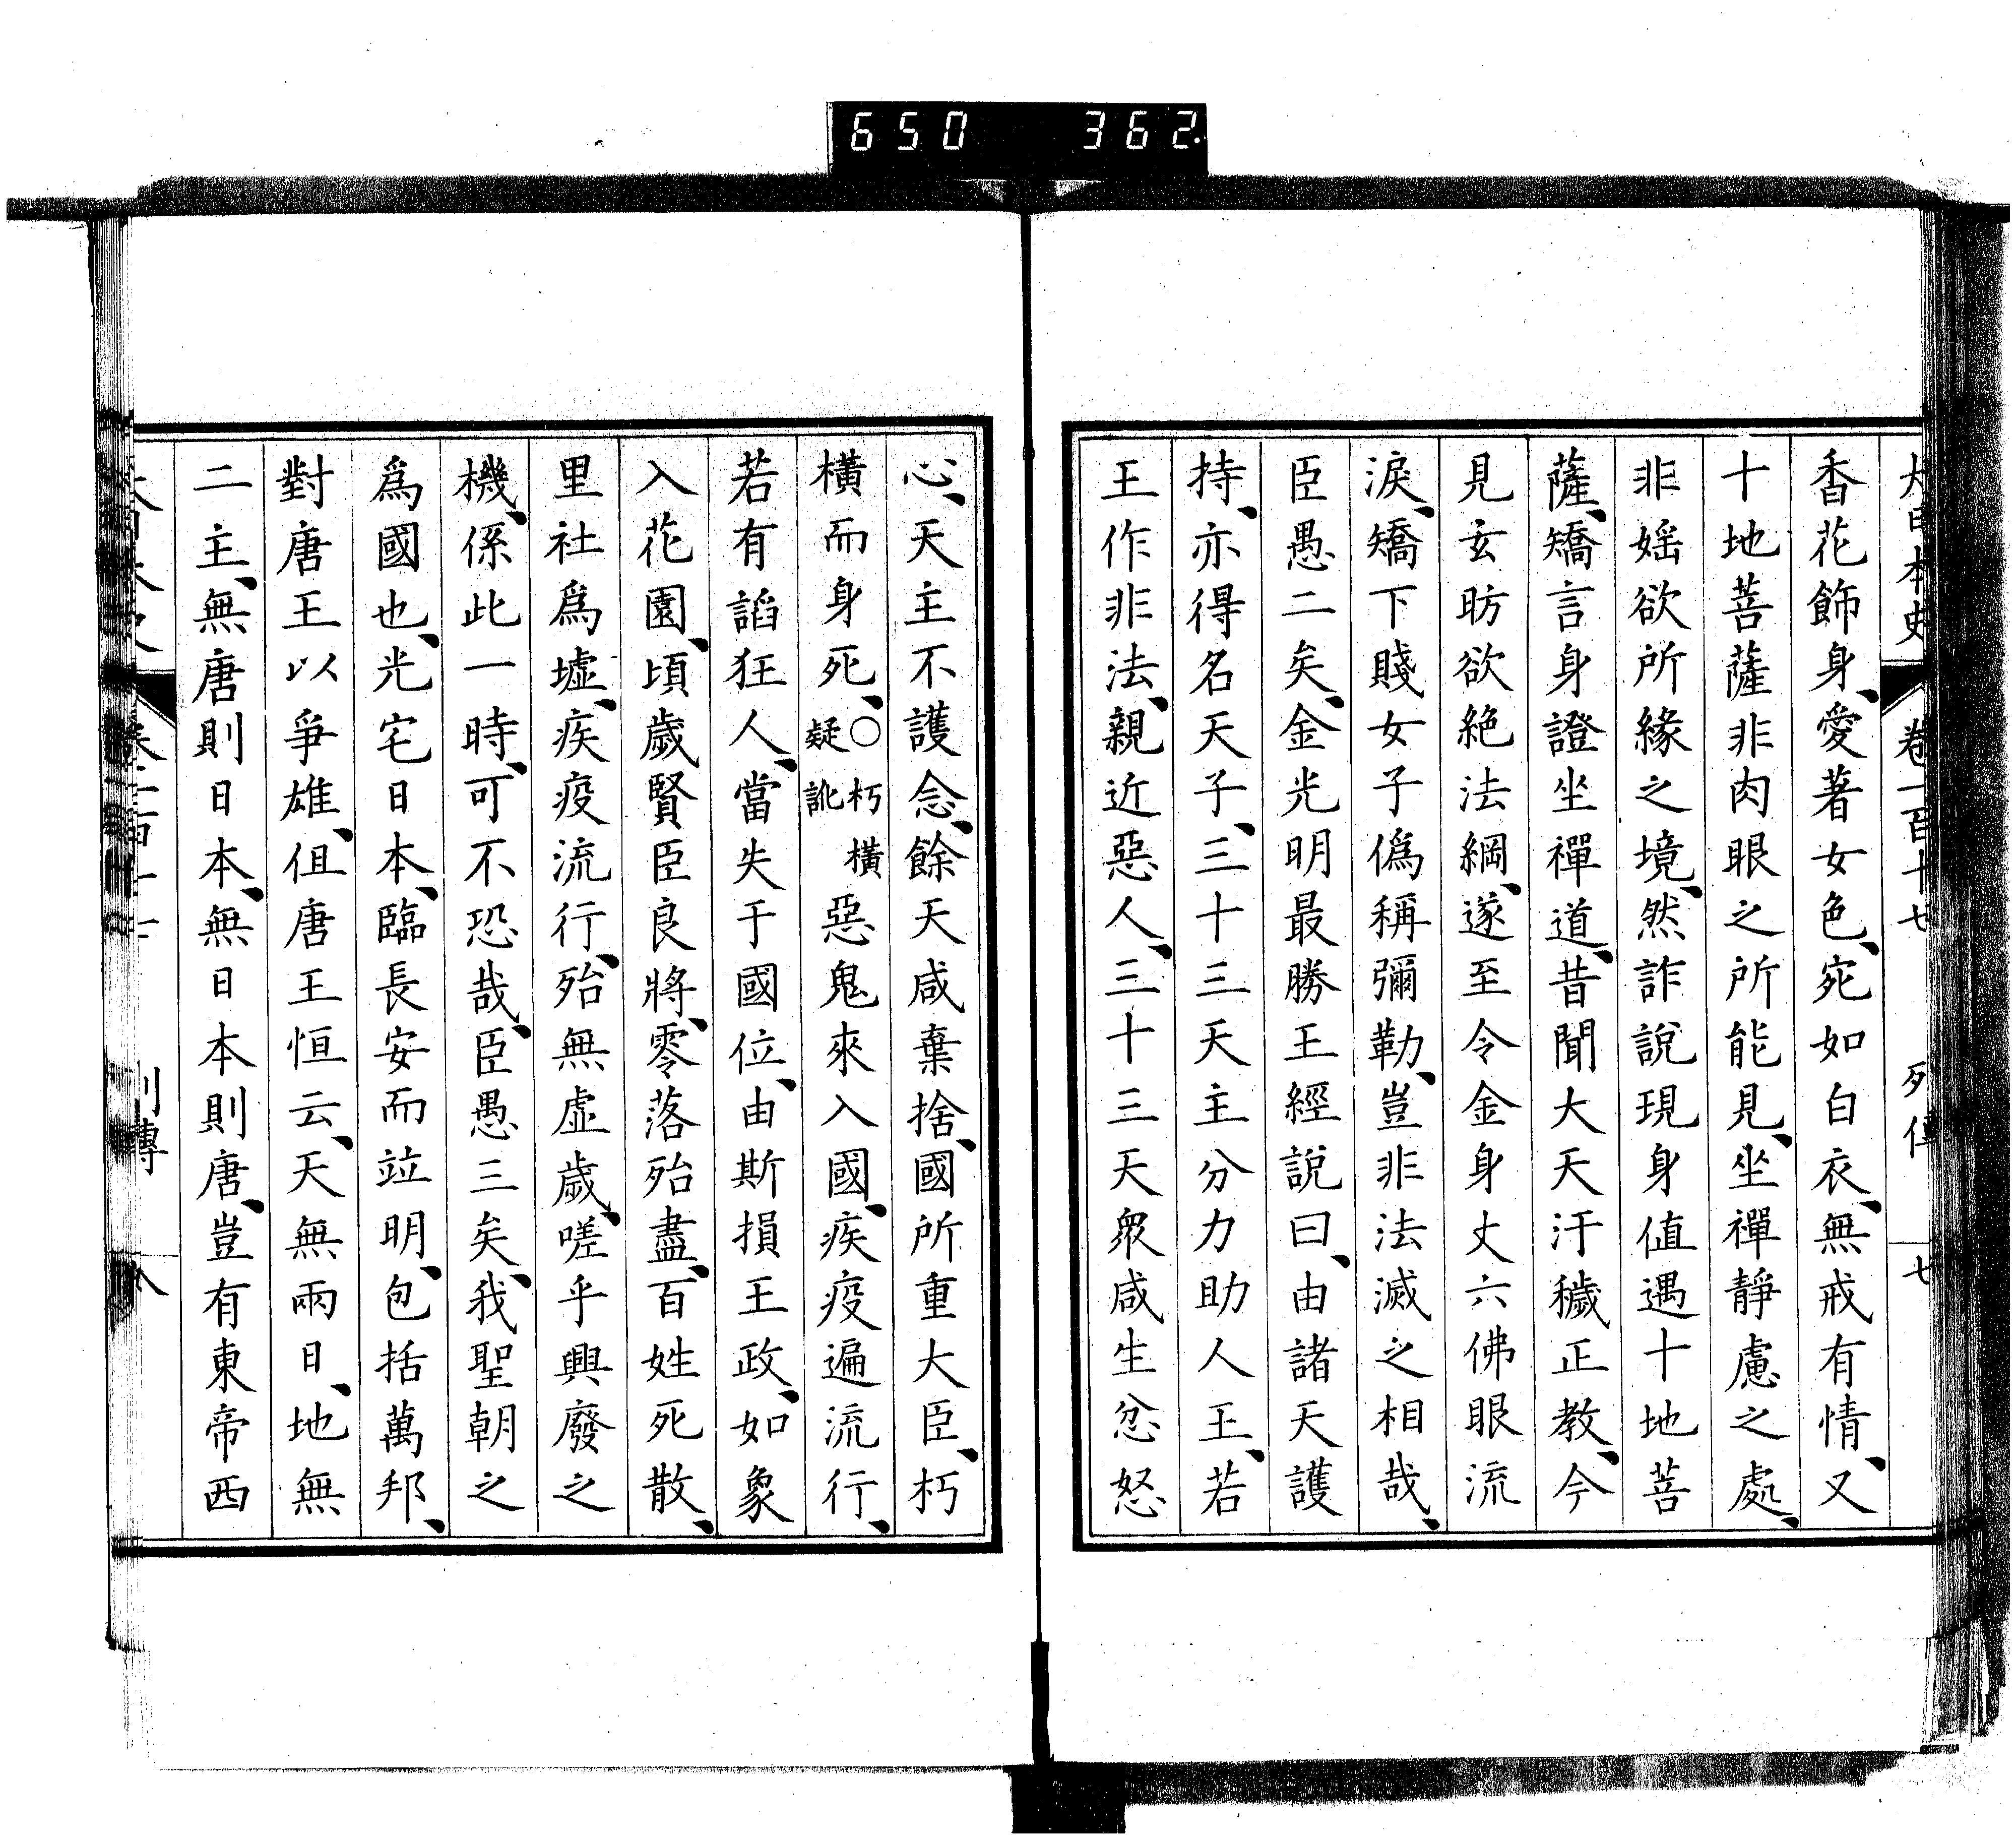 650 362
大日本史 卷一百十七 列傳 七
香花飾身、愛著女色、宛如白衣、無戒有情、又
十地菩薩非肉眼之所能見、坐禪靜慮之處、
非婬欲所緣之境、然詐說現身値遇十地菩
薩、矯言身證坐禪道、昔聞大天汙穢正教、今
見玄昉欲絶法綱、遂至令金身丈六佛眼流
淚、矯下賤女子僞稱彌勒、豈非法滅之相哉、
臣愚二矣、金光明最勝王經說曰、由諸天護
持、亦得名天子、三十三天主分力助人王、若
王作非法、親近惡人、三十三天眾咸生忿怒
心、天主不護念、餘天咸棄捨、國所重大臣、朽
橫而身死、○朽橫疑訛惡鬼來入國、疾疫遍流行、
若有諂狂人、當失于國位、由斯損王政、如象
入花園、頃歲賢臣良將、零落殆盡、百姓死散、
里社爲墟、疾疫流行、殆無虛歲、嗟乎興廢之
機、係此一時、可不恐哉、臣愚三矣、我聖朝之
爲國也、光宅日本、臨長安而竝明、包括萬邦、
對唐王以爭雄、但唐王恒云、天無兩日、地無
二主、無唐則日本、無日本則唐、豈有東帝西
列傳 八